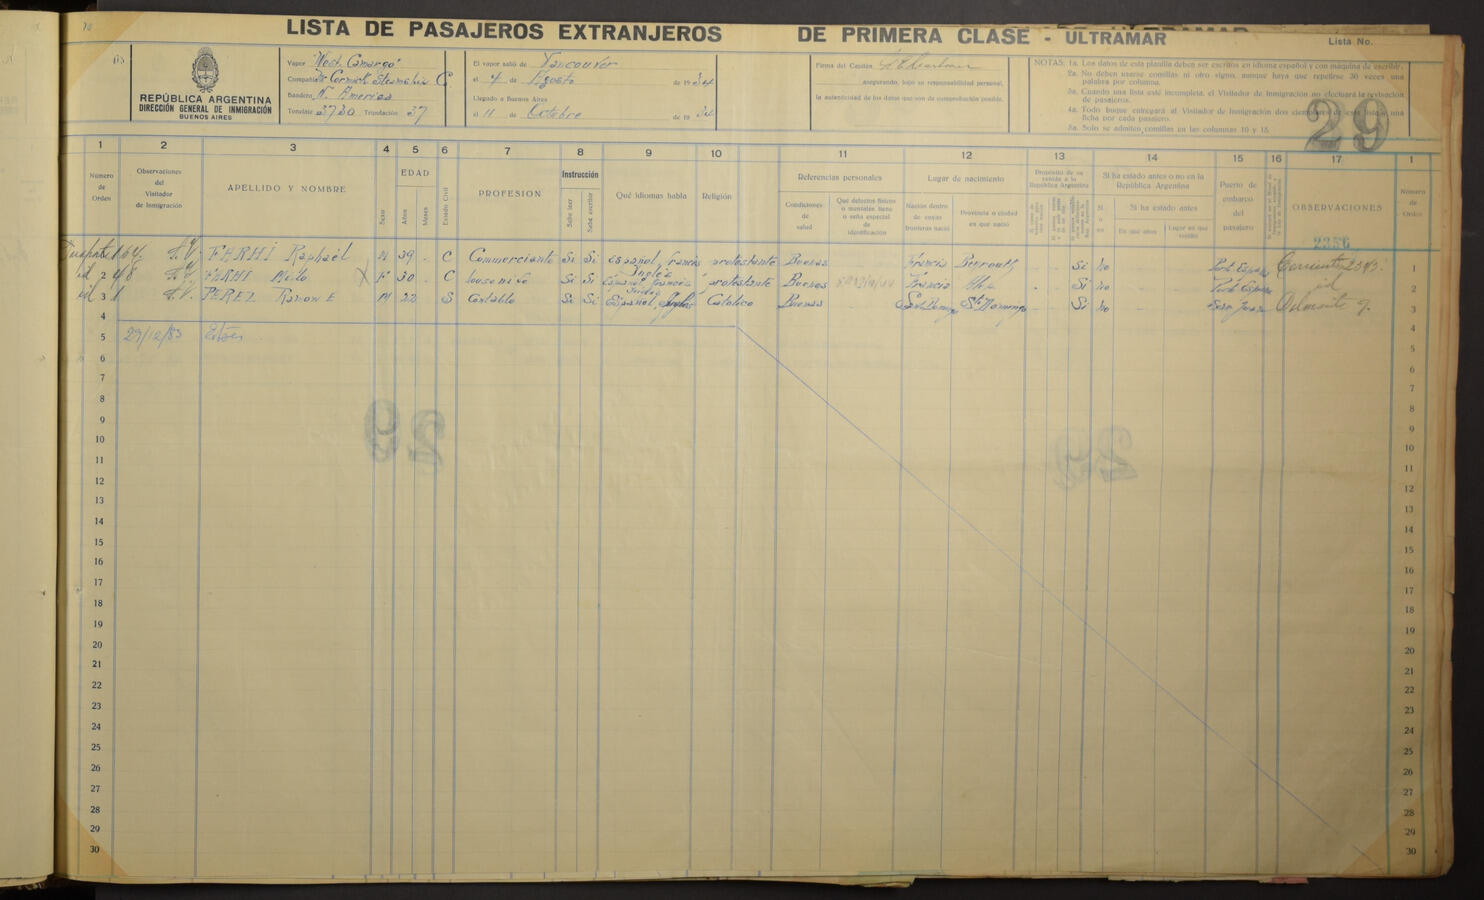 LISTA DE PASAJEROS EXTRANJEROS DE PRIMERA CLASE - ULTRAMAR
Lista No.
REPÚBLICA ARGENTINA
DIRECCIÓN GENERAL DE INMIGRACIÓN
BUENOS AIRES
Vapor West Camargo
Compañía Mc Cormick Steamship C
Bandera N. America
Tonelaje 3730 Tripulación 37
El vapor salió de Vancouver
el 4 de Agosto de 1934
Llegado a Buenos Aires
el 11 de Octubre de 1934
Firma del Capitán
asegurando, bajo su responsabilidad personal,
la autenticidad de los datos que son de comprobación posible.
NOTAS: 1a. Los datos de esta planilla deben ser escritos en idioma español y con máquina de escribir.
2a. No deben usarse comillas ni otro signo, aunque haya que repetirse 30 veces una palabra por columna.
3a. Cuando una lista esté incompleta, el Visitador de Inmigración no efectuará la revisación de pasajeros.
4a. Todo buque entregará al Visitador de Inmigración dos ejemplares de esta lista y una ficha por cada pasajero.
5a. Solo se admiten comillas en las columnas 10 y 15.
29
1 2 3 4 5 6 7 8 9 10 11 12 13 14 15 16 17 1
Número de Orden
Observaciones del Visitador de Inmigración
APELLIDO Y NOMBRE
Sexo
EDAD
Años
Meses
Estado Civil
PROFESION
Instrucción
Sabe leer
Sabe escribir
Qué idiomas habla
Religión
Referencias personales
Condiciones de salud
Qué defectos físicos o mentales tiene o seña especial de identificación
Lugar de nacimiento
Nación dentro de cuyas fronteras nació
Provincia o ciudad en que nació
Propósito de su venida a la República Argentina
Si ha estado antes o no en la República Argentina
Si o no
Si ha estado antes
En qué años
Lugar en que residió
Puerto de embarco del pasajero
OBSERVACIONES
Número de Orden
2356
1 FARHI Raphaël M 39 - C Commerciante Si Si Español, francés Inglés protestante Buenas Francia Beyrouth - - Si No Port. España Corrientes 2343 1
id 2 FARHI X F 30 - C Si Si Español francés Inglés protestante Buenas Francia - - Si No Port España id 2
id 3 PEREZ Ramon E M 22 S Contable Si Si Español, Ingles Catolico Buenas Sto Domingo Sto Domingo - Si No San Juan 3
4 4
5 29/12/83 5
6 6
7 7
8 8
9 9
10 10
11 11
12 12
13 13
14 14
15 15
16 16
17 17
18 18
19 19
20 20
21 21
22 22
23 23
24 24
25 25
26 26
27 27
28 28
29 29
30 30